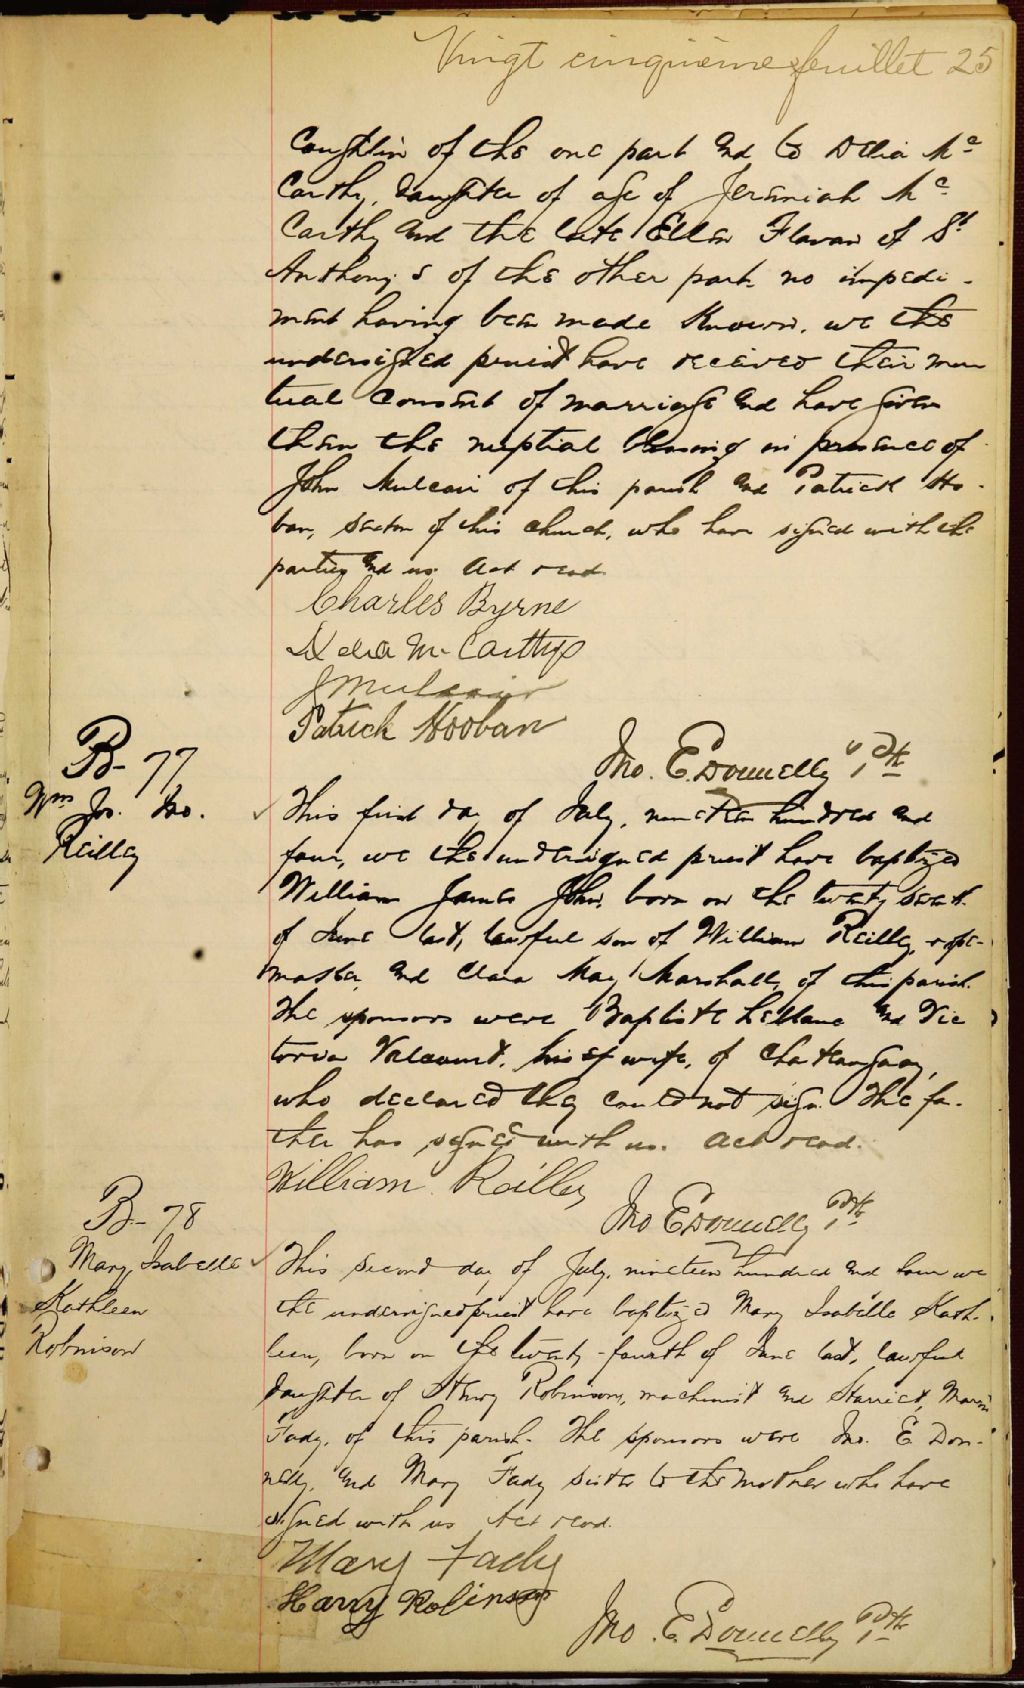 Vingt cinquième feuillet 25
Coughlin of the one part and to Delia Mc
Carthy, daughter of age of Jeremiah Mc
Carthy and the late Ellen Flavan of St
Anthony's of the other part no impedi-
ment having been made known, we the
undersigned priest have received their mu
tual consent of marriage and have given
them the nuptial blessing in presence of
John Mulcair of this parish and Patrick Ho-
ban, sexton of this church, who have signed with the
parties and us. Act read.
Charles Byrne
Delia McCarthy
J Mulcair
Patrick Hooban
Jno. E. Donnelly Pst
B-77
Wm Js. Jno.
Reilly
This first day of July, nineteen hundred and
four, we the undersigned priest have baptized
William James John, born on the twenty seventh
of June last, lawful son of William Reilly, rope-
master, and Clara May Marshall, of this parish.
The sponsors were Baptiste and Vic
toria Valcourt, his wife, of Chateauguay,
who declared they could not sign. The fa-
ther has signed with us. Act read.
William Reilley
Jno E Donnelly Pst
B-78
Mary Isabelle
Kathleen
Robinson
This second day of July, nineteen hundred and four we
the undersigned priest have baptized Mary Isabelle Kath-
leen, born on the twenty-fourth of June last, lawful
daughter of Henry Robinson, machinist and Harriet
Fady, of this parish. The sponsors were Jno. E Don-
nelly, and Mary Fady sister to the mother who have
signed with us Act read.
Mary Fady
Harry Robinson
Jno. E. Donnelly Pst